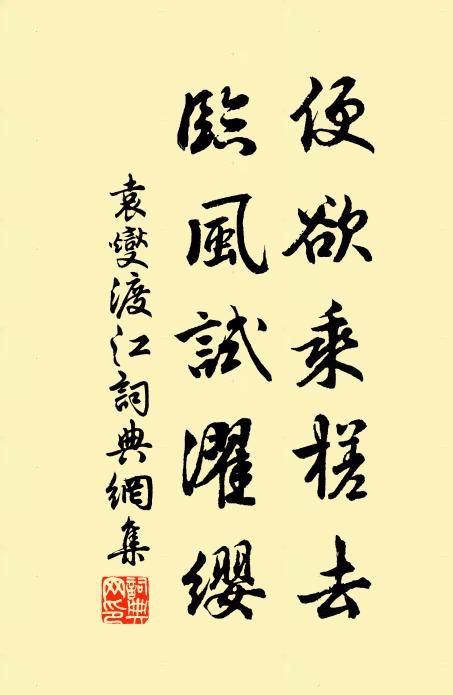 便欲乘槎去
臨風試濯纓
袁燮渡江詞典網集
詞典網印